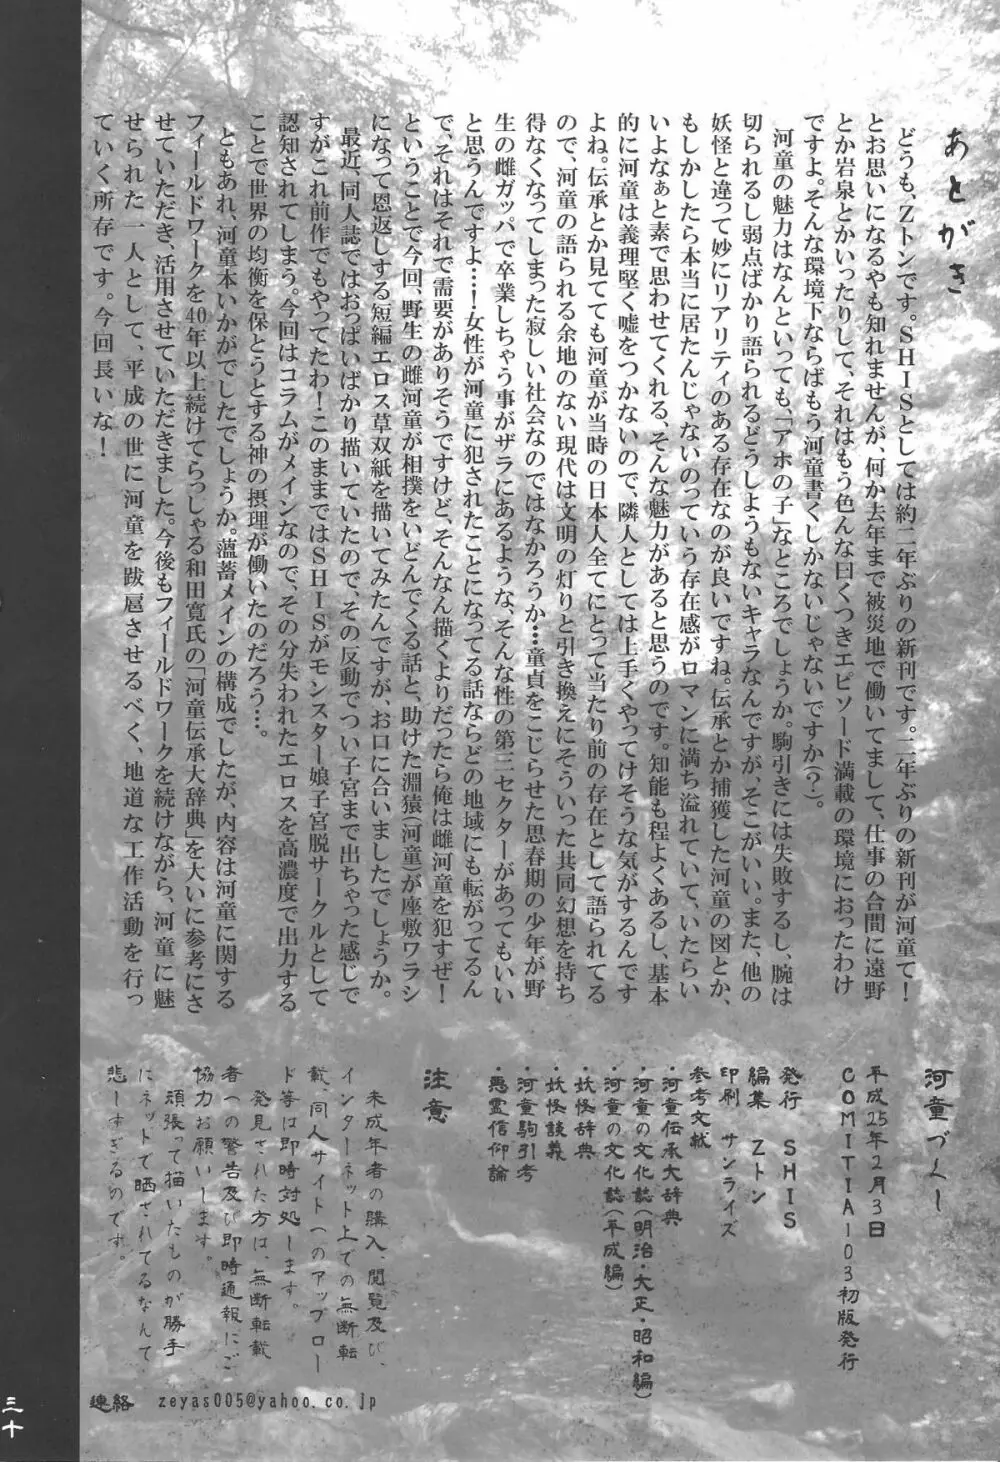 あとがき
どうも、Zトンです。SHISとしては約二年ぶりの新刊です。二年ぶりの新刊が河童て！
とお思いになるやも知れませんが、何か去年まで被災地で働いてまして、仕事の合間に遠野
とか岩泉とかいったりして、それはもう色んな曰くつきエピソード満載の環境におったわけ
ですよ。そんな環境下ならばもう河童書くしかないじゃないですか（？）。
河童の魅力はなんといっても、「アホの子」なところでしょうか。駒引きには失敗するし、腕は
切られるし弱点ばかり語られるどうしようもないキャラなんですが、そこがいい。また、他の
妖怪と違って妙にリアリティのある存在なのが良いですね。伝承とか捕獲した河童の図とか、
もしかしたら本当に居たんじゃないのっていう存在感がロマンに満ち溢れていて、いたらい
いよなぁと素で思わせてくれる、そんな魅力があると思うのです。知能も程よくあるし、基本
的に河童は義理堅く嘘をつかないので、隣人としては上手くやってけそうな気がするんです
よね。伝承とか見てても河童が当時の日本人全てにとって当たり前の存在として語られてる
ので、河童の語られる余地のない現代は文明の灯りと引き換えにそういった共同幻想を持ち
得なくなってしまった寂しい社会なのではなかろうか…童貞をこじらせた思春期の少年が野
生の雌ガッパで卒業しちゃう事がザラにあるような、そんな性の第三セクターがあってもいい
と思うんですよ…！女性が河童に犯されたことになってる話ならどの地域にも転がってるん
で、それはそれで需要がありそうですけど、そんなん描くよりだったら俺は雌河童を犯すぜ！
ということで今回、野生の雌河童が相撲をいどんでくる話と、助けた淵猿（河童）が座敷ワラシ
になって恩返しする短編エロス草双紙を描いてみたんですが、お口に合いましたでしょうか。
最近、同人誌ではおっぱいばかり描いていたので、その反動でつい子宮まで出ちゃった感じで
すがこれ前作でもやってたわ！このままではSHISがモンスター娘子宮脱サークルとして
認知されてしまう。今回はコラムがメインなので、その分失われたエロスを高濃度で出力する
ことで世界の均衡を保とうとする神の摂理が働いたのだろう…。
ともあれ、河童本いかがでしたでしょうか。薀蓄メインの構成でしたが、内容は河童に関する
フィールドワークを40年以上続けてらっしゃる和田寛氏の「河童伝承大辞典」を大いに参考にさ
せていただき、活用させていただきました。今後もフィールドワークを続けながら、河童に魅
せられた一人として、平成の世に河童を跋扈させるべく、地道な工作活動を行っ
ていく所存です。今回長いな！
河童づくし
平成25年2月3日
COMITIA103初版発行
発行　SHIS
編集　Zトン
印刷　サンライズ
参考文献
・河童伝承大辞典
・河童の文化誌（明治・大正・昭和編）
・河童の文化誌（平成編）
・妖怪辞典
・妖怪談義
・河童駒引考
・愚霊信仰論
注意
未成年者の購入、閲覧及び、
インターネット上での無断転
載、同人サイトへのアップロー
ド等は即時対処します。
発見された方は、無断転載
者への警告及び即時通報にご
協力お願いします。
頑張って描いたものが勝手
にネットで晒されてるなんて
悲しすぎるのです。
連絡　zeyas005@yahoo.co.jp
三十